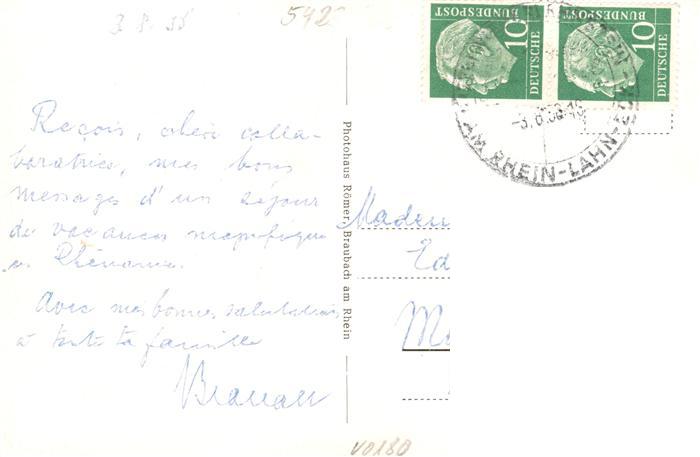 3.8.56
542
Reçois, chère colla-
boratrice, mes bons
messages d'un séjour
de vacances magnifique
en Rhénanie.
Avec mes bonnes salutations
à toute ta famille
Photohaus Römer, Braubach am Rhein
DEUTSCHE
BUNDESPOST
10
DEUTSCHE
BUNDESPOST
10
AM RHEIN-LAHN-
Madem
Ed
M
V0180